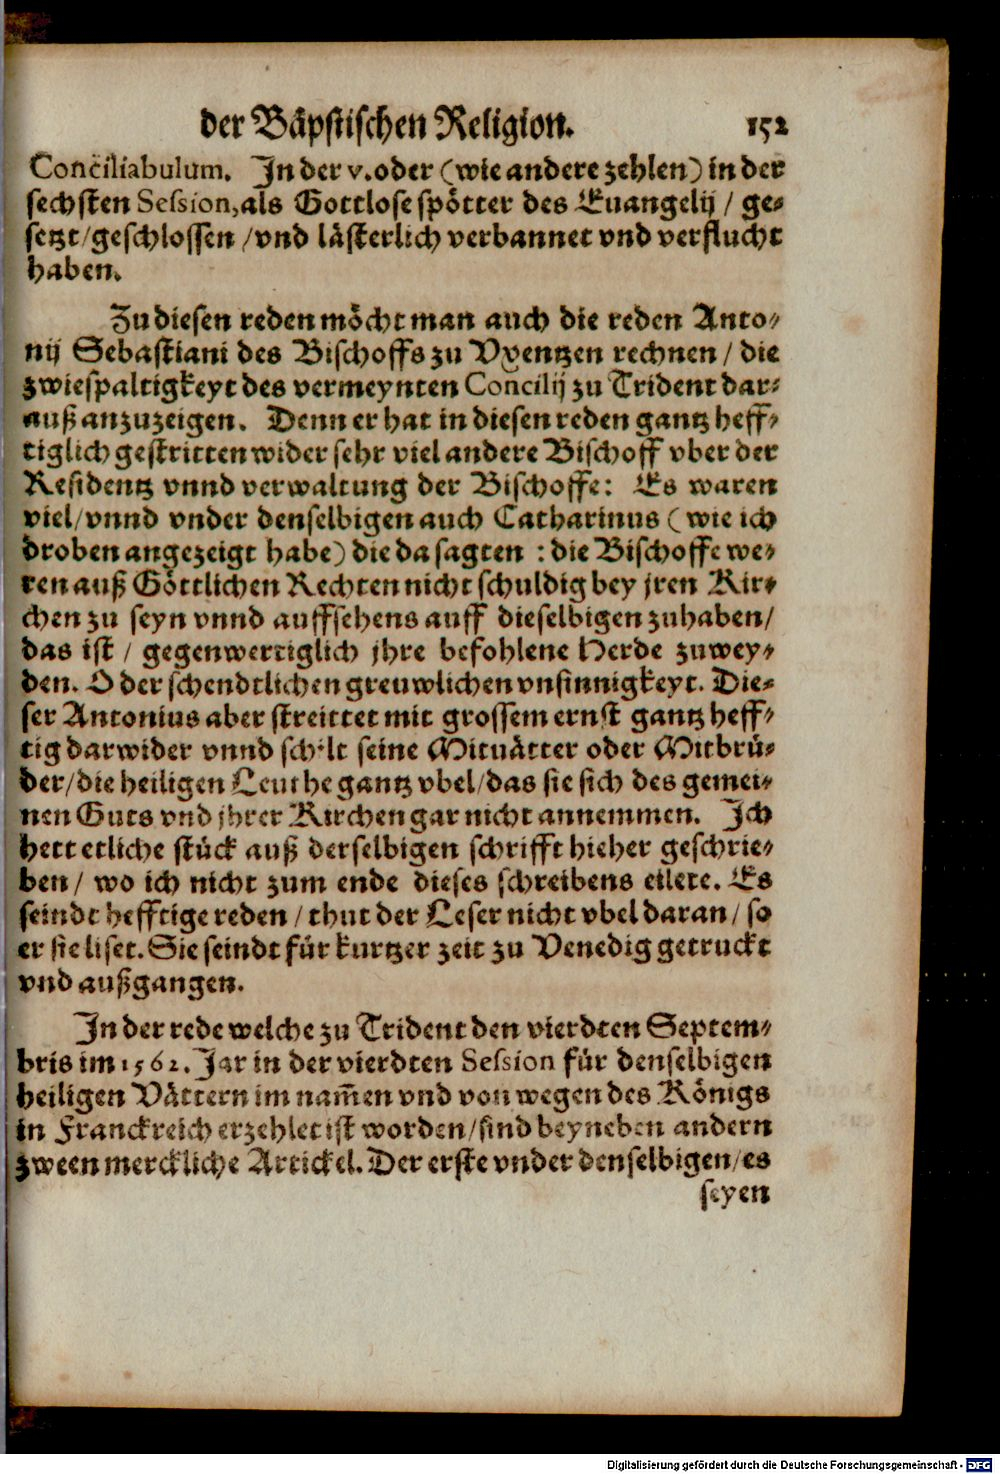 der Bäpstischen Religion. 152
Conciliabulum. In der v. oder (wie andere zehlen) in der
sechsten Session, als Gottlose spötter des Euangelij / ge-
setzt / geschlossen / vnd lästerlich verbannet vnd verflucht
haben.
Zu diesen reden möcht man auch die reden Anto-
nij Sebastiani des Bischoffs zu Vxentzen rechnen / die
zwiespaltigkeyt des vermeynten Concilij zu Trident dar-
auß anzuzeigen. Denn er hat in diesen reden gantz heff-
tiglich gestritten wider sehr viel andere Bischoff vber der
Residentz vnnd verwaltung der Bischoffe: Es waren
viel / vnnd vnder denselbigen auch Catharinus (wie ich
droben angezeigt habe) die da sagten : die Bischoffe we-
ren auß Göttlichen Rechten nicht schuldig bey jren Kir-
chen zu seyn vnnd auffsehens auff dieselbigen zuhaben /
das ist / gegenwertiglich jhre befohlene Herde zuwey-
den. O der schendtlichen greuwlichen vnsinnigkeyt. Die-
ser Antonius aber streittet mit grossem ernst gantz heff-
tig darwider vnnd schilt seine Mituätter oder Mitbrü-
der / die heiligen Leuthe gantz vbel / das sie sich des gemei-
nen Guts vnd jhrer Kirchen gar nicht annemmen. Ich
hett etliche stück auß derselbigen schrifft hieher geschrie-
ben / wo ich nicht zum ende dieses schreibens eilete. Es
seindt hefftige reden / thut der Leser nicht vbel daran / so
er sie liset. Sie seindt für kurtzer zeit zu Venedig getruckt
vnd außgangen.
In der rede welche zu Trident den vierdten Septem-
bris im 1562. Jar in der vierdten Session für denselbigen
heiligen Vättern im nam̃en vnd von wegen des Königs
in Franckreich erzehlet ist worden / sind beyneben andern
zween merckliche Artickel. Der erste vnder denselbigen / es
seyen
Digitalisierung gefördert durch die Deutsche Forschungsgemeinschaft - DFG